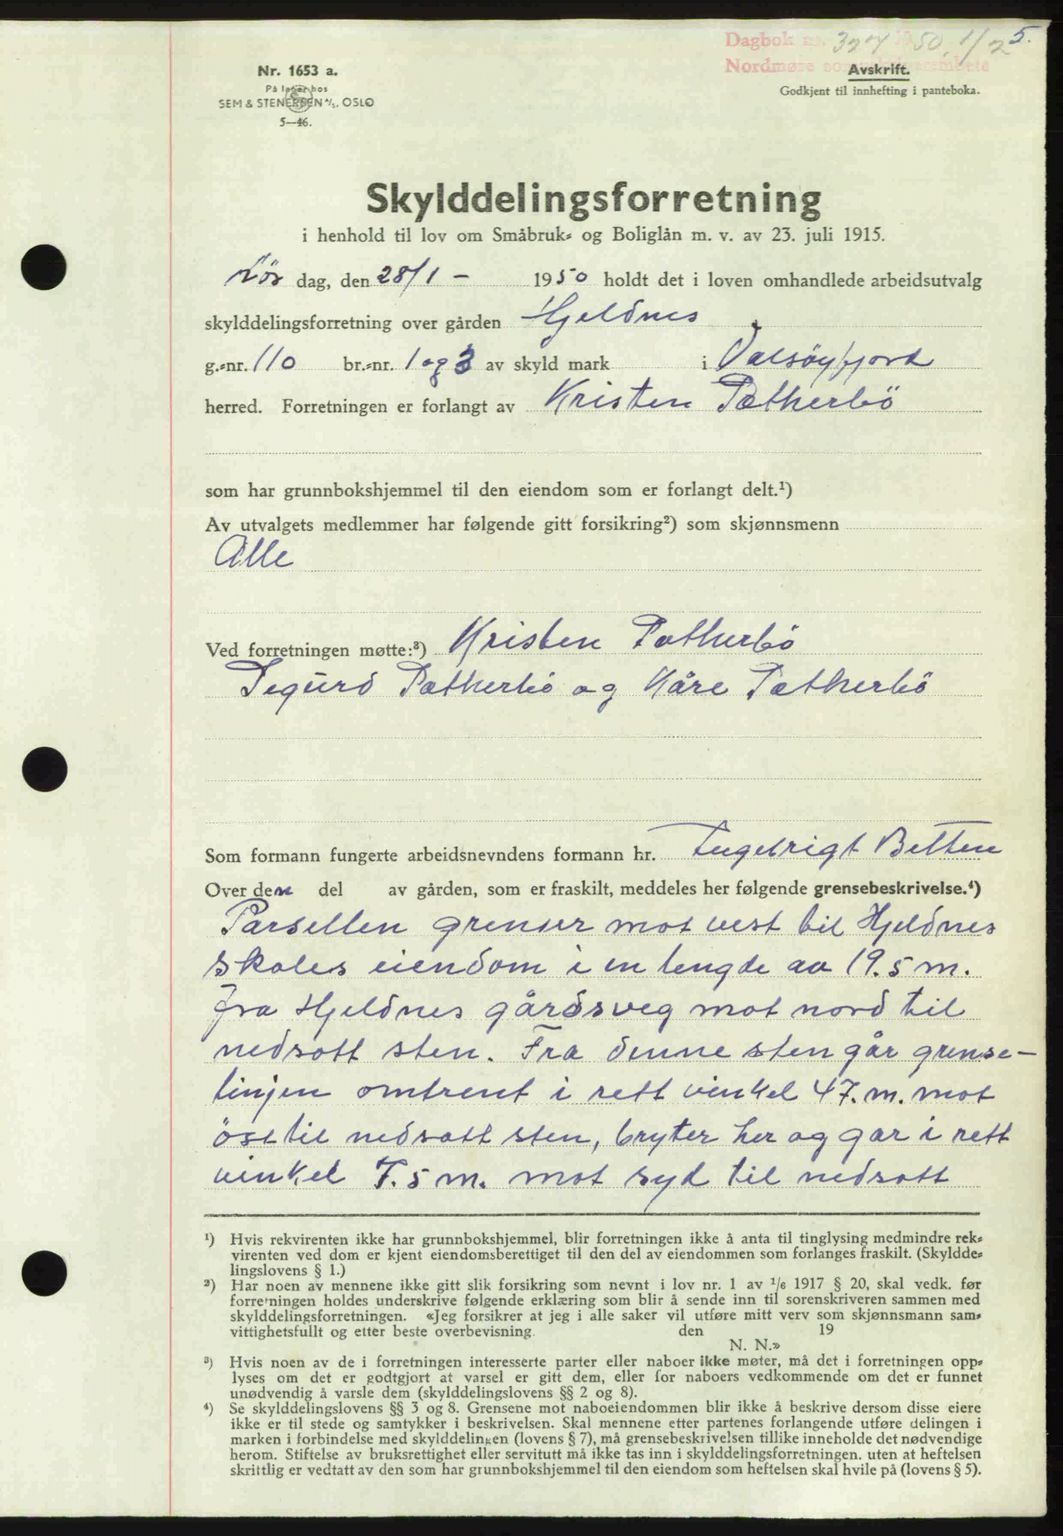 Dagbok nr. 327 1950, 1/2 5.
Nordmøre sorenskriverembete
Nr. 1653 a.
På lager hos
SEM & STENERSEN A/S, OSLO
5—46.
Avskrift.
Godkjent til innhefting i panteboka.
Skylddelingsforretning
i henhold til lov om Småbruk- og Boliglån m. v. av 23. juli 1915.
Lör dag, den 28/1 - 1950 holdt det i loven omhandlede arbeidsutvalg
skylddelingsforretning over gården Hjeldnes
g.-nr. 110 br.-nr. 1 og 3 av skyld mark i Valsöyfjord
herred. Forretningen er forlangt av Kristen Pætherbö
som har grunnbokshjemmel til den eiendom som er forlangt delt.¹)
Av utvalgets medlemmer har følgende gitt forsikring²) som skjønnsmenn
Alle
Ved forretningen møtte:³) Kristen Pætherbö
Sigurd Pætherbö og Kåre Pætherbö
Som formann fungerte arbeidsnevndens formann hr. Ingebrigt Betten
Over den del av gården, som er fraskilt, meddeles her følgende grensebeskrivelse.⁴)
Parsellen grenser mot vest til Hjeldnes
skoles eiendom i en lengde av 19.5 m.
fra Hjeldnes gårdsveg mot nord til
nedsatt sten. Fra denne sten går grense-
linjen omtrent i rett vinkel 47. m. mot
öst til nedsatt sten, bryter her og går i rett
vinkel 7.5 m. mot syd til nedsatt
¹) Hvis rekvirenten ikke har grunnbokshjemmel, blir forretningen ikke å anta til tinglysing medmindre rek-
virenten ved dom er kjent eiendomsberettiget til den del av eiendommen som forlanges fraskilt. (Skyldde-
lingslovens § 1.)
²) Har noen av mennene ikke gitt slik forsikring som nevnt i lov nr. 1 av 1/6 1917 § 20, skal vedk. før
forretningen holdes underskrive følgende erklæring som blir å sende inn til sorenskriveren sammen med
skylddelingsforretningen. «Jeg forsikrer at jeg i alle saker vil utføre mitt verv som skjønnsmann sam-
vittighetsfullt og etter beste overbevisning. den 19
N. N.»
³) Hvis noen av de i forretningen interesserte parter eller naboer ikke møter, må det i forretningen opp-
lyses om det er godtgjort at varsel er gitt dem, eller for naboers vedkommende om det er funnet
unødvendig å varsle dem (skylddelingslovens §§ 2 og 8).
⁴) Se skylddelingslovens §§ 3 og 8. Grensene mot naboeiendommen blir ikke å beskrive dersom disse eiere
ikke er til stede og samtykker i beskrivelsen. Skal mennene etter partenes forlangende utføre delingen i
marken i forbindelse med skylddelingen (lovens § 7), må grensebeskrivelsen tillike inneholde det nødvendige
herom. Stiftelse av bruksrettighet eller servitutt må ikke tas inn i skylddelingsforretningen. uten at heftelsen
skriftlig er vedtatt av den som har grunnbokshjemmel til den eiendom som heftelsen skal hvile på (lovens § 5).